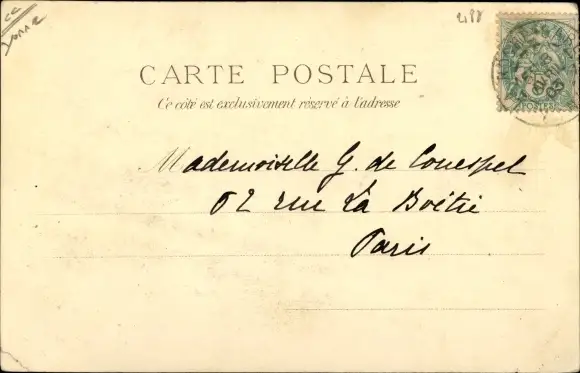 CC
Yonne
CARTE POSTALE
Ce côté est exclusivement réservé à l'adresse
POSTES
03
Mademoiselle G. de Couespel
52 rue La Boétie
Paris